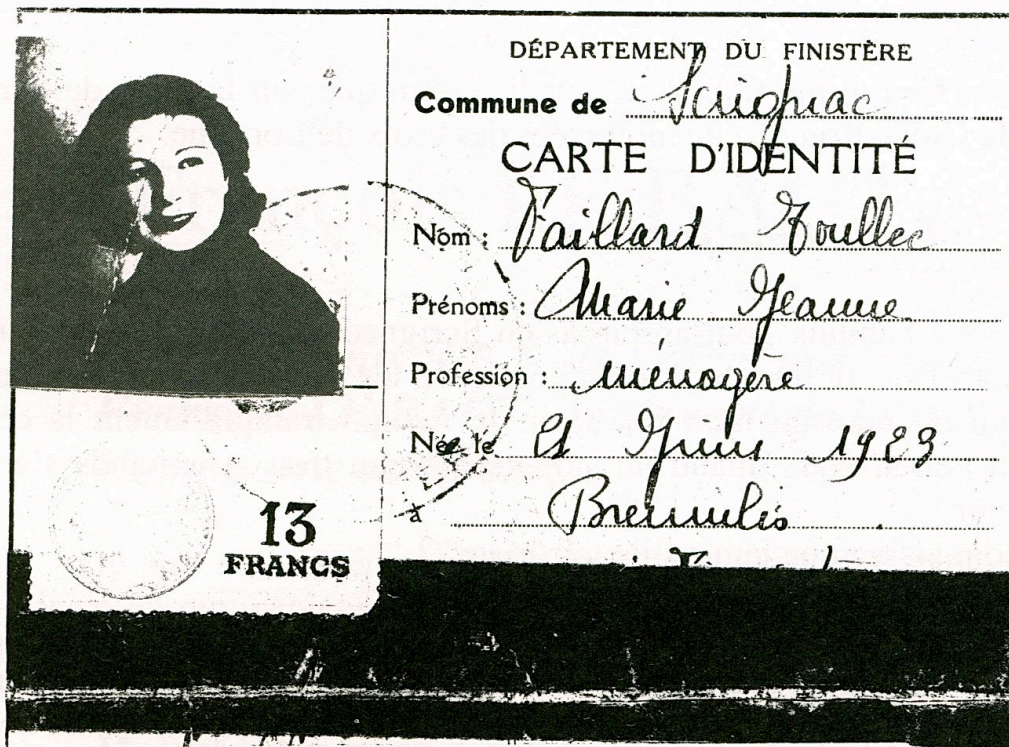 DÉPARTEMENT DU FINISTÈRE
Commune de Scrignac
CARTE D'IDENTITÉ
Nom : Toullec
Prénoms : Marie Jeanne
Profession : Ménagère
Née le 21 Juin 1923
à Brennilis
13
FRANCS